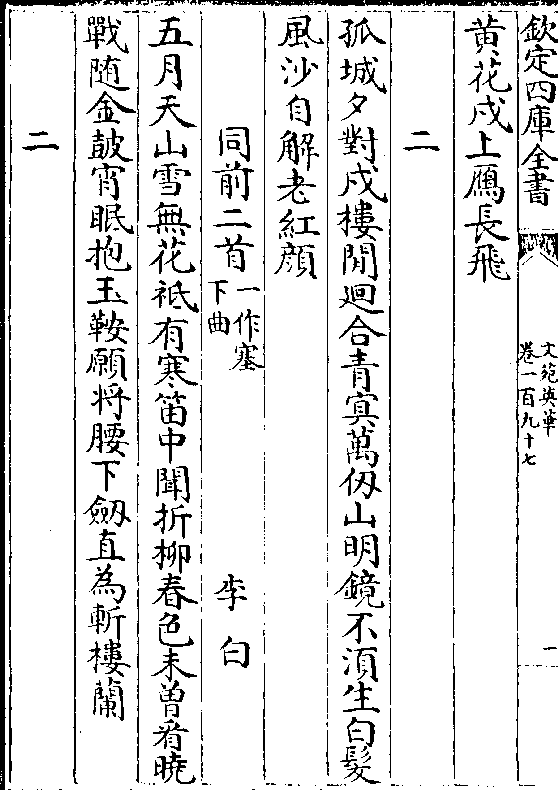 欽定四庫全書
文苑英華
卷一百九十七
一
黄花戍上鴈長飛
二
孤城夕對戍樓閒迴合青㝠萬仭山明鏡不湏生白髮
風沙自解老紅顔
同前二首一作塞下曲 李白
五月天山雪無花祗有寒笛中聞折柳春色未曽㸔曉
戰随金皷宵眠抱玉鞍願将腰下劔直為斬樓蘭
二